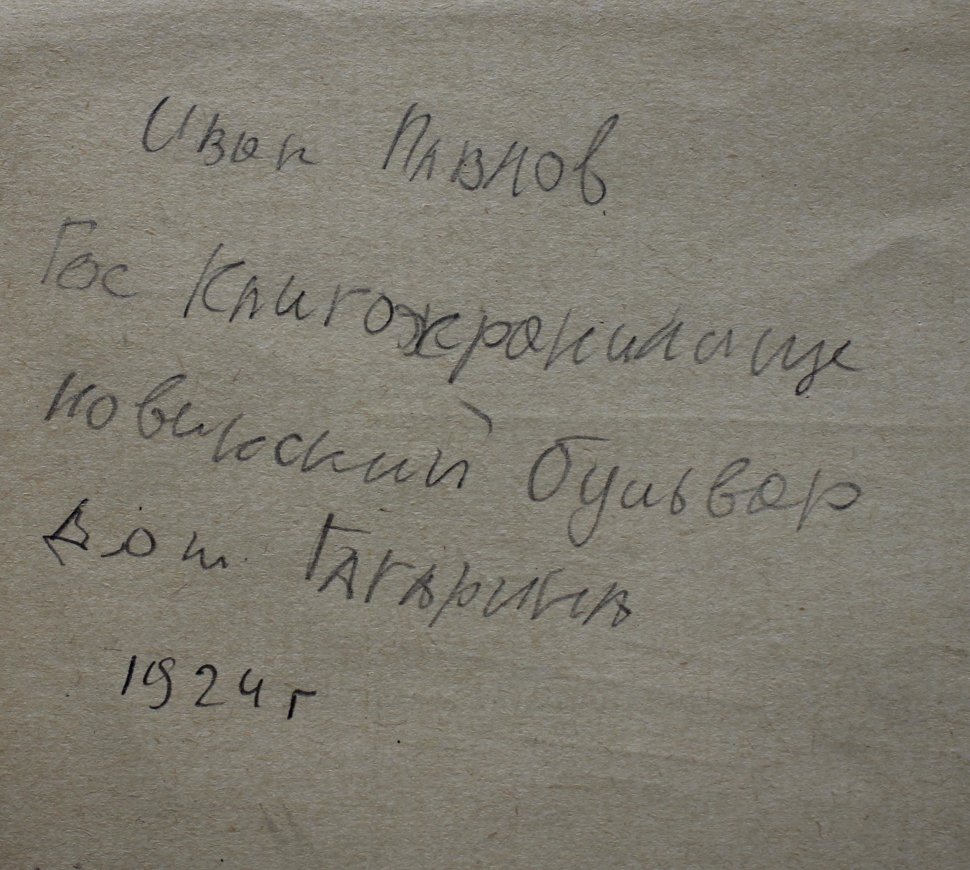 Иван Павлов
Гос Книгохранилище
Новинский бульвар
Дом Гагарина
1924 г